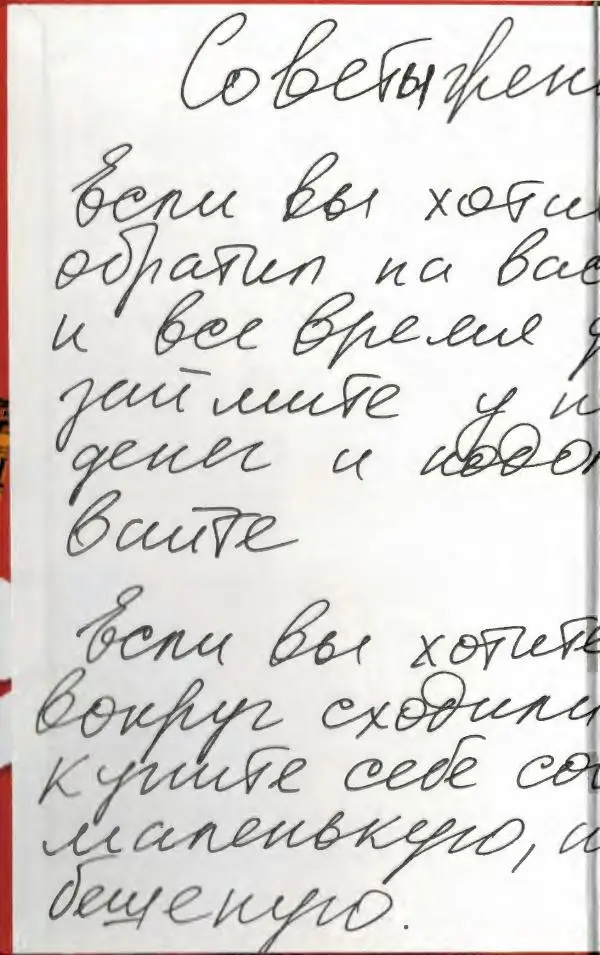 Советы жен
Если вы хоти
обратил на вас
и все время д
займите у н
денег и
вайте
Если вы хотите
вокруг сходили
купите себе со
маленькую, н
бешеную.